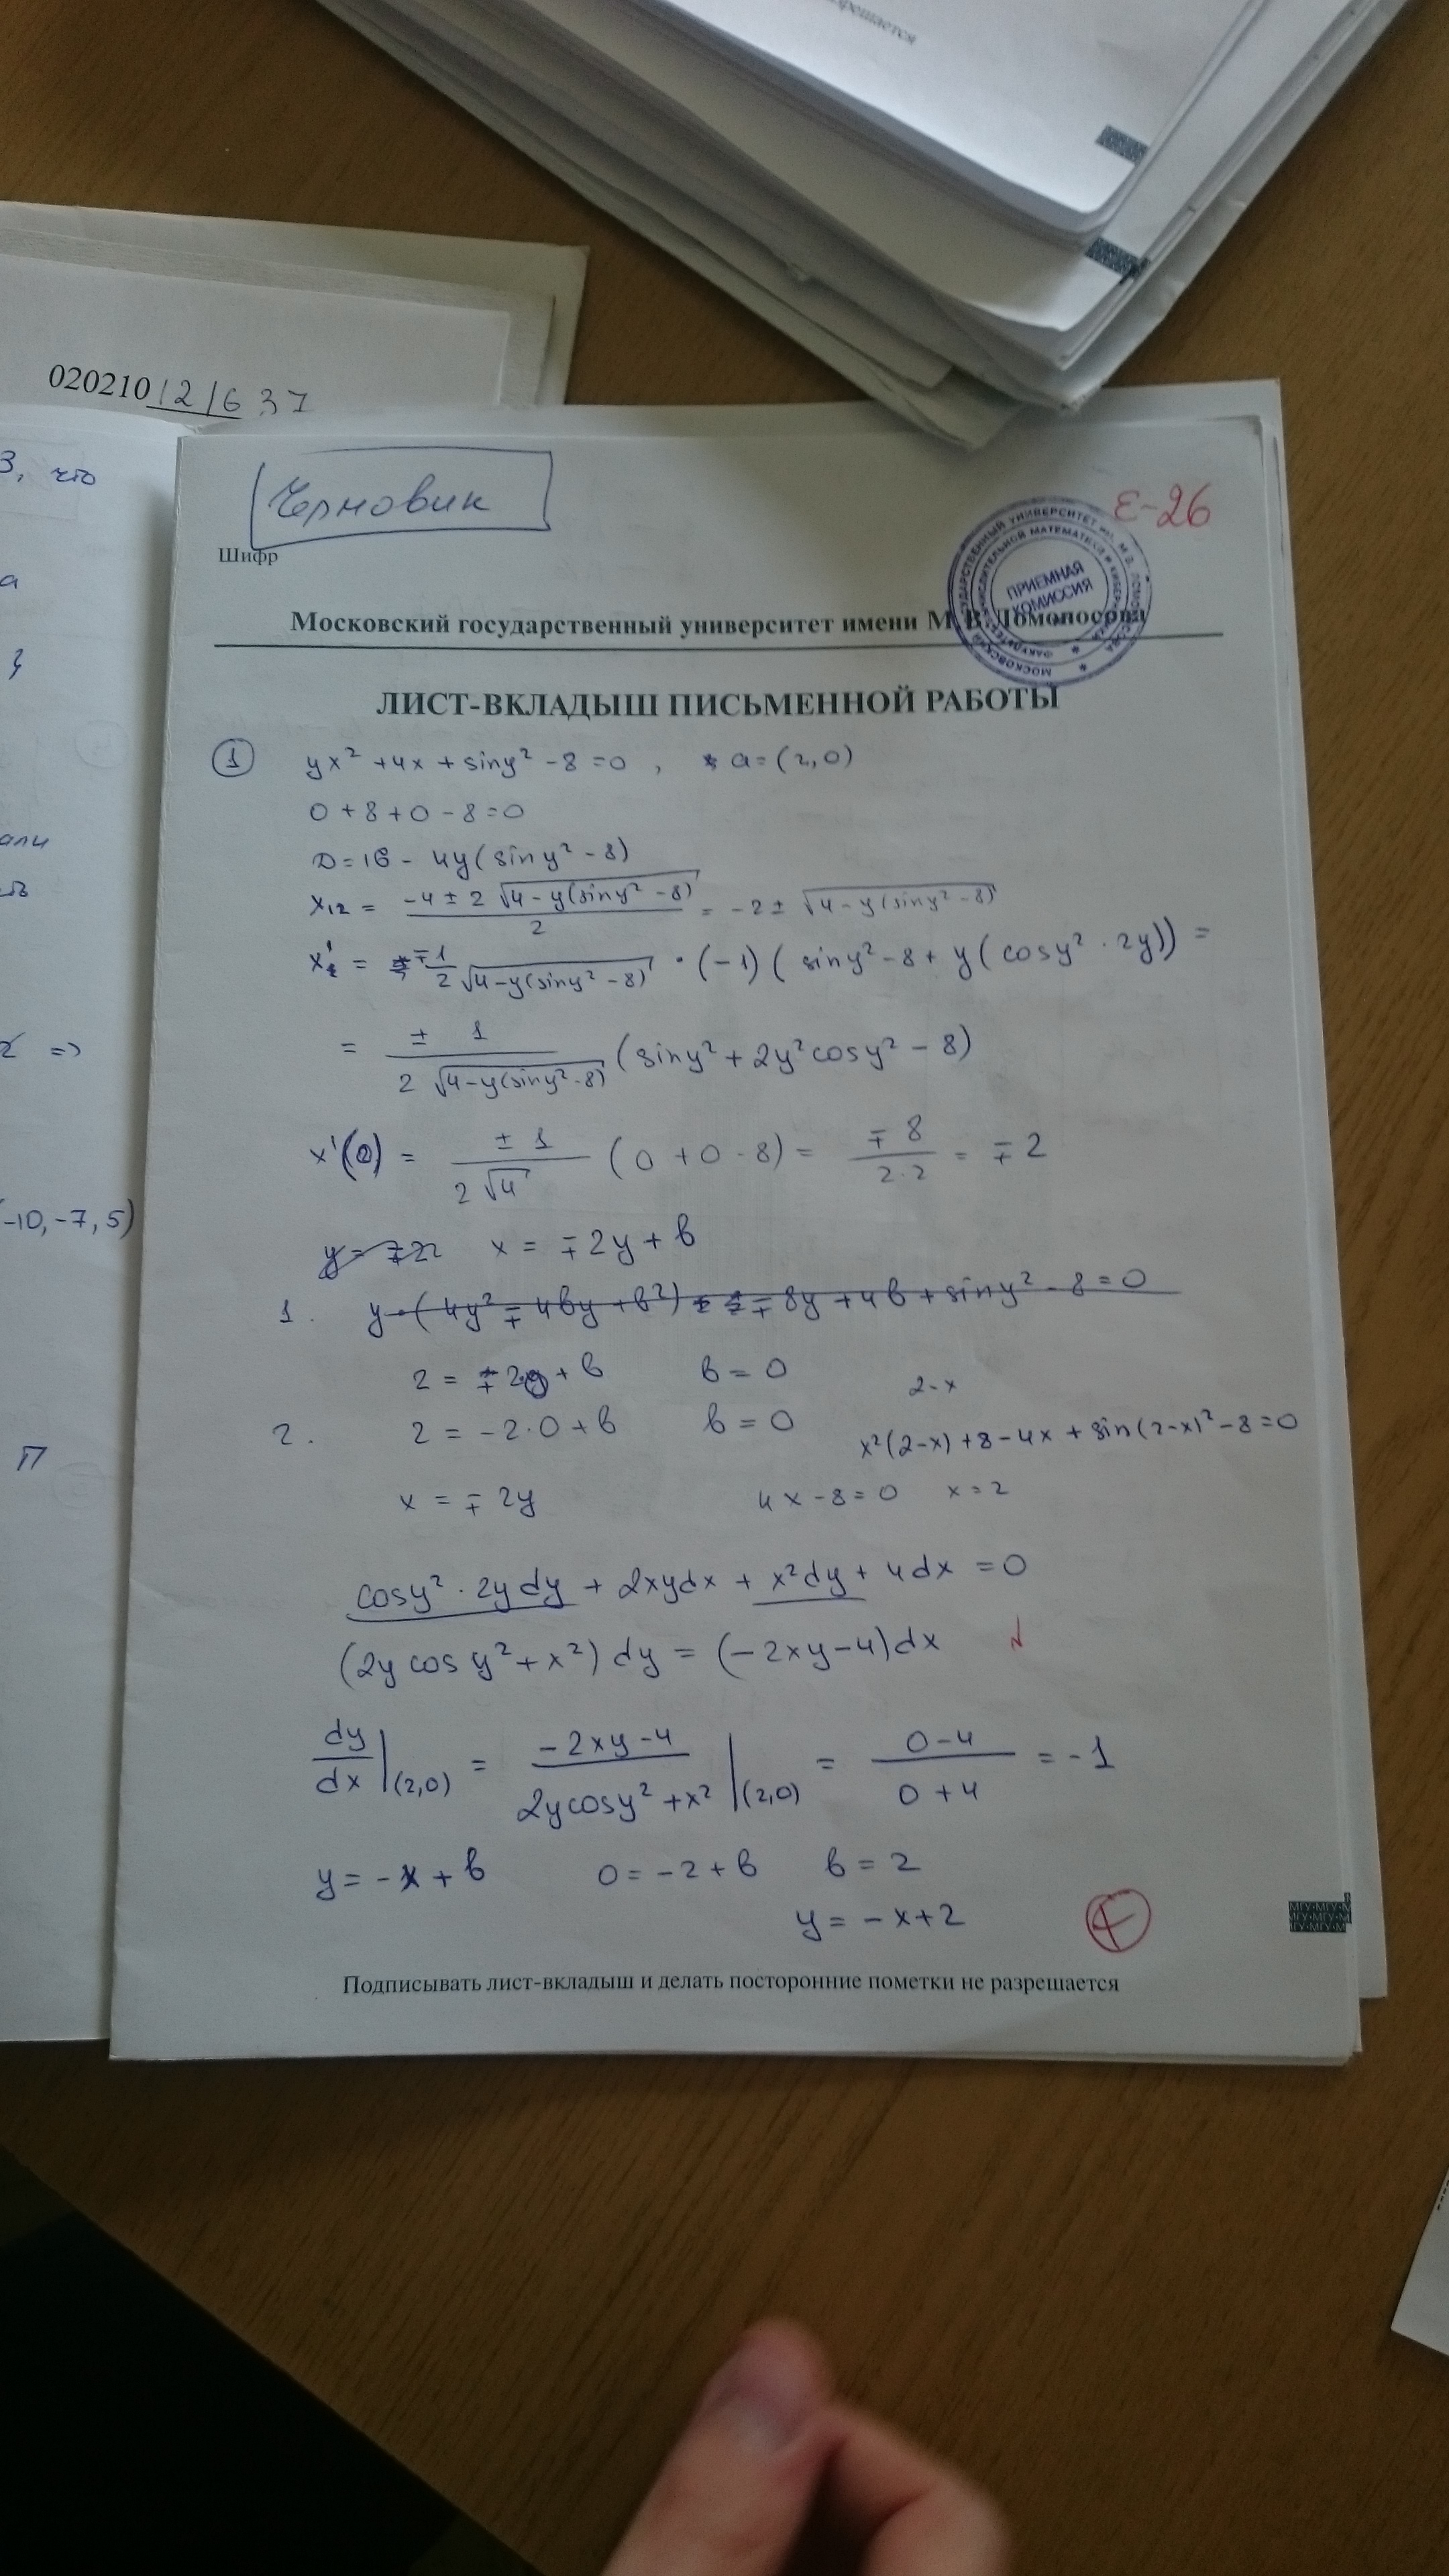 решается
020210 12/637
3, что
а
али
=>
-10, -7, 5)
П
Черновик
Е-26
Шифр
ПРИЕМНАЯ КОМИССИЯ
Московский государственный университет имени М.В. Ломоносова
ЛИСТ-ВКЛАДЫШ ПИСЬМЕННОЙ РАБОТЫ
① yx² + 4x + siny² - 8 = 0, a = (2,0)
0 + 8 + 0 - 8 = 0
D = 16 - 4y(siny² - 8)
x₁₂ = (-4 ± 2√(4 - y(siny² - 8)))/2 = -2 ± √(4 - y(siny² - 8))
x' = ∓1/(2√(4 - y(siny² - 8))) · (-1)(siny² - 8 + y(cosy² · 2y)) =
= ±1/(2√(4 - y(siny² - 8))) (siny² + 2y²cosy² - 8)
x'(0) = ±1/(2√4) (0 + 0 - 8) = ∓8/(2·2) = ∓2
x = ∓2y + b
1. y·(4y² ∓ 4by + b²) ∓ 8y + 4b + siny² - 8 = 0
2 = ∓2·0 + b b = 0
2-x
2. 2 = -2·0 + b b = 0 x²(2-x) + 8 - 4x + sin(2-x)² - 8 = 0
x = ∓2y 4x - 8 = 0 x = 2
cosy² · 2y dy + 2xydx + x²dy + 4dx = 0
(2y cos y² + x²) dy = (-2xy - 4)dx
dy/dx |(2,0) = (-2xy - 4)/(2ycosy² + x²) |(2,0) = (0-4)/(0+4) = -1
y = -x + b 0 = -2 + b b = 2
y = -x + 2
Подписывать лист-вкладыш и делать посторонние пометки не разрешается